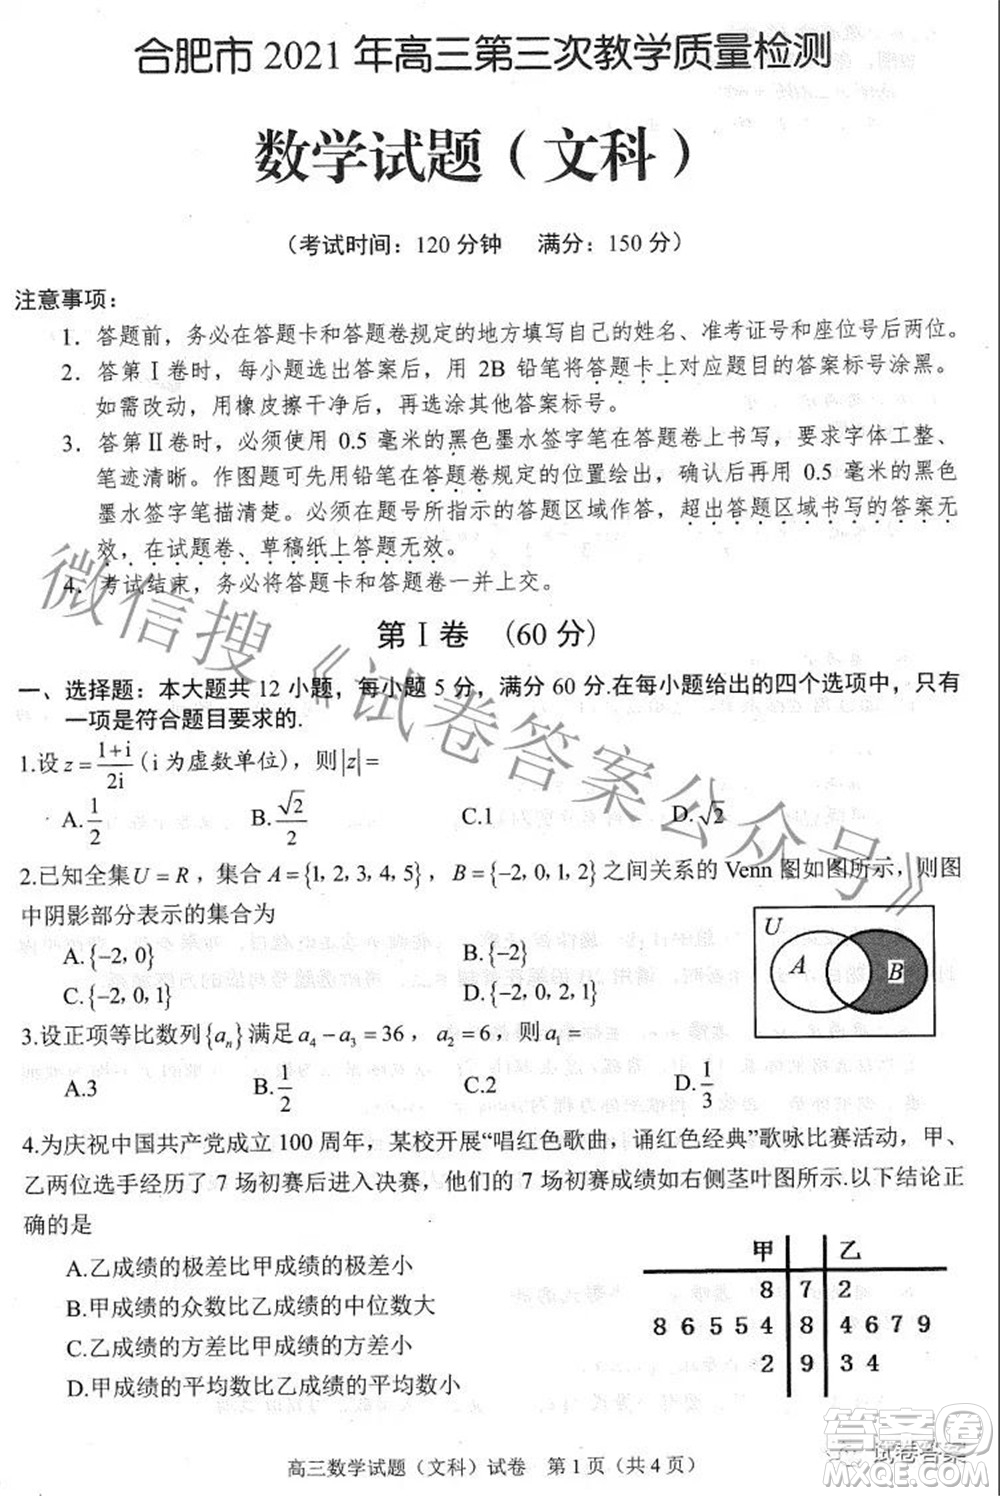 合肥市 2021 年高三第三次教学质量检测
数学试题（文科）
（考试时间：120 分钟 满分：150 分）
注意事项：
1．答题前，务必在答题卡和答题卷规定的地方填写自己的姓名、准考证号和座位号后两位。
2．答第Ⅰ卷时，每小题选出答案后，用 2B 铅笔将答题卡上对应题目的答案标号涂黑。
如需改动，用橡皮擦干净后，再选涂其他答案标号。
3．答第Ⅱ卷时，必须使用 0.5 毫米的黑色墨水签字笔在答题卷上书写，要求字体工整、
笔迹清晰。作图题可先用铅笔在答题卷规定的位置绘出，确认后再用 0.5 毫米的黑色
墨水签字笔描清楚。必须在题号所指示的答题区域作答，超出答题区域书写的答案无
效，在试题卷、草稿纸上答题无效。
4．考试结束，务必将答题卡和答题卷一并上交。
第Ⅰ卷 (60 分)
一、选择题：本大题共 12 小题，每小题 5 分，满分 60 分.在每小题给出的四个选项中，只有
一项是符合题目要求的.
1.设 z = \frac{1+i}{2i} (i 为虚数单位)，则|z| =
A.\frac{1}{2} B.\frac{\sqrt{2}}{2} C.1 D.\sqrt{2}
2.已知全集U = R，集合 A = {1, 2, 3, 4, 5}，B = {-2, 0, 1, 2} 之间关系的 Venn 图如图所示，则图
中阴影部分表示的集合为
A.{-2, 0} B.{-2}
C.{-2, 0, 1} D.{-2, 0, 1, 2}
U
A B
3.设正项等比数列{a_n}满足 a_4 - a_3 = 36，a_2 = 6，则 a_1 =
A.3 B.\frac{1}{2} C.2 D.\frac{1}{3}
4.为庆祝中国共产党成立 100 周年，某校开展“唱红色歌曲，诵红色经典”歌咏比赛活动，甲、
乙两位选手经历了 7 场初赛后进入决赛，他们的 7 场初赛成绩如右侧茎叶图所示.以下结论正
确的是
A.乙成绩的极差比甲成绩的极差小
B.甲成绩的众数比乙成绩的中位数大
C.乙成绩的方差比甲成绩的方差小
D.甲成绩的平均数比乙成绩的平均数小
甲 乙
8 7 2
8 6 5 5 4 8 4 6 7 9
2 9 3 4
高三数学试题（文科）试卷 第 1 页（共 4 页）
微信搜《试卷答案公众号》
答案卷
试卷答案